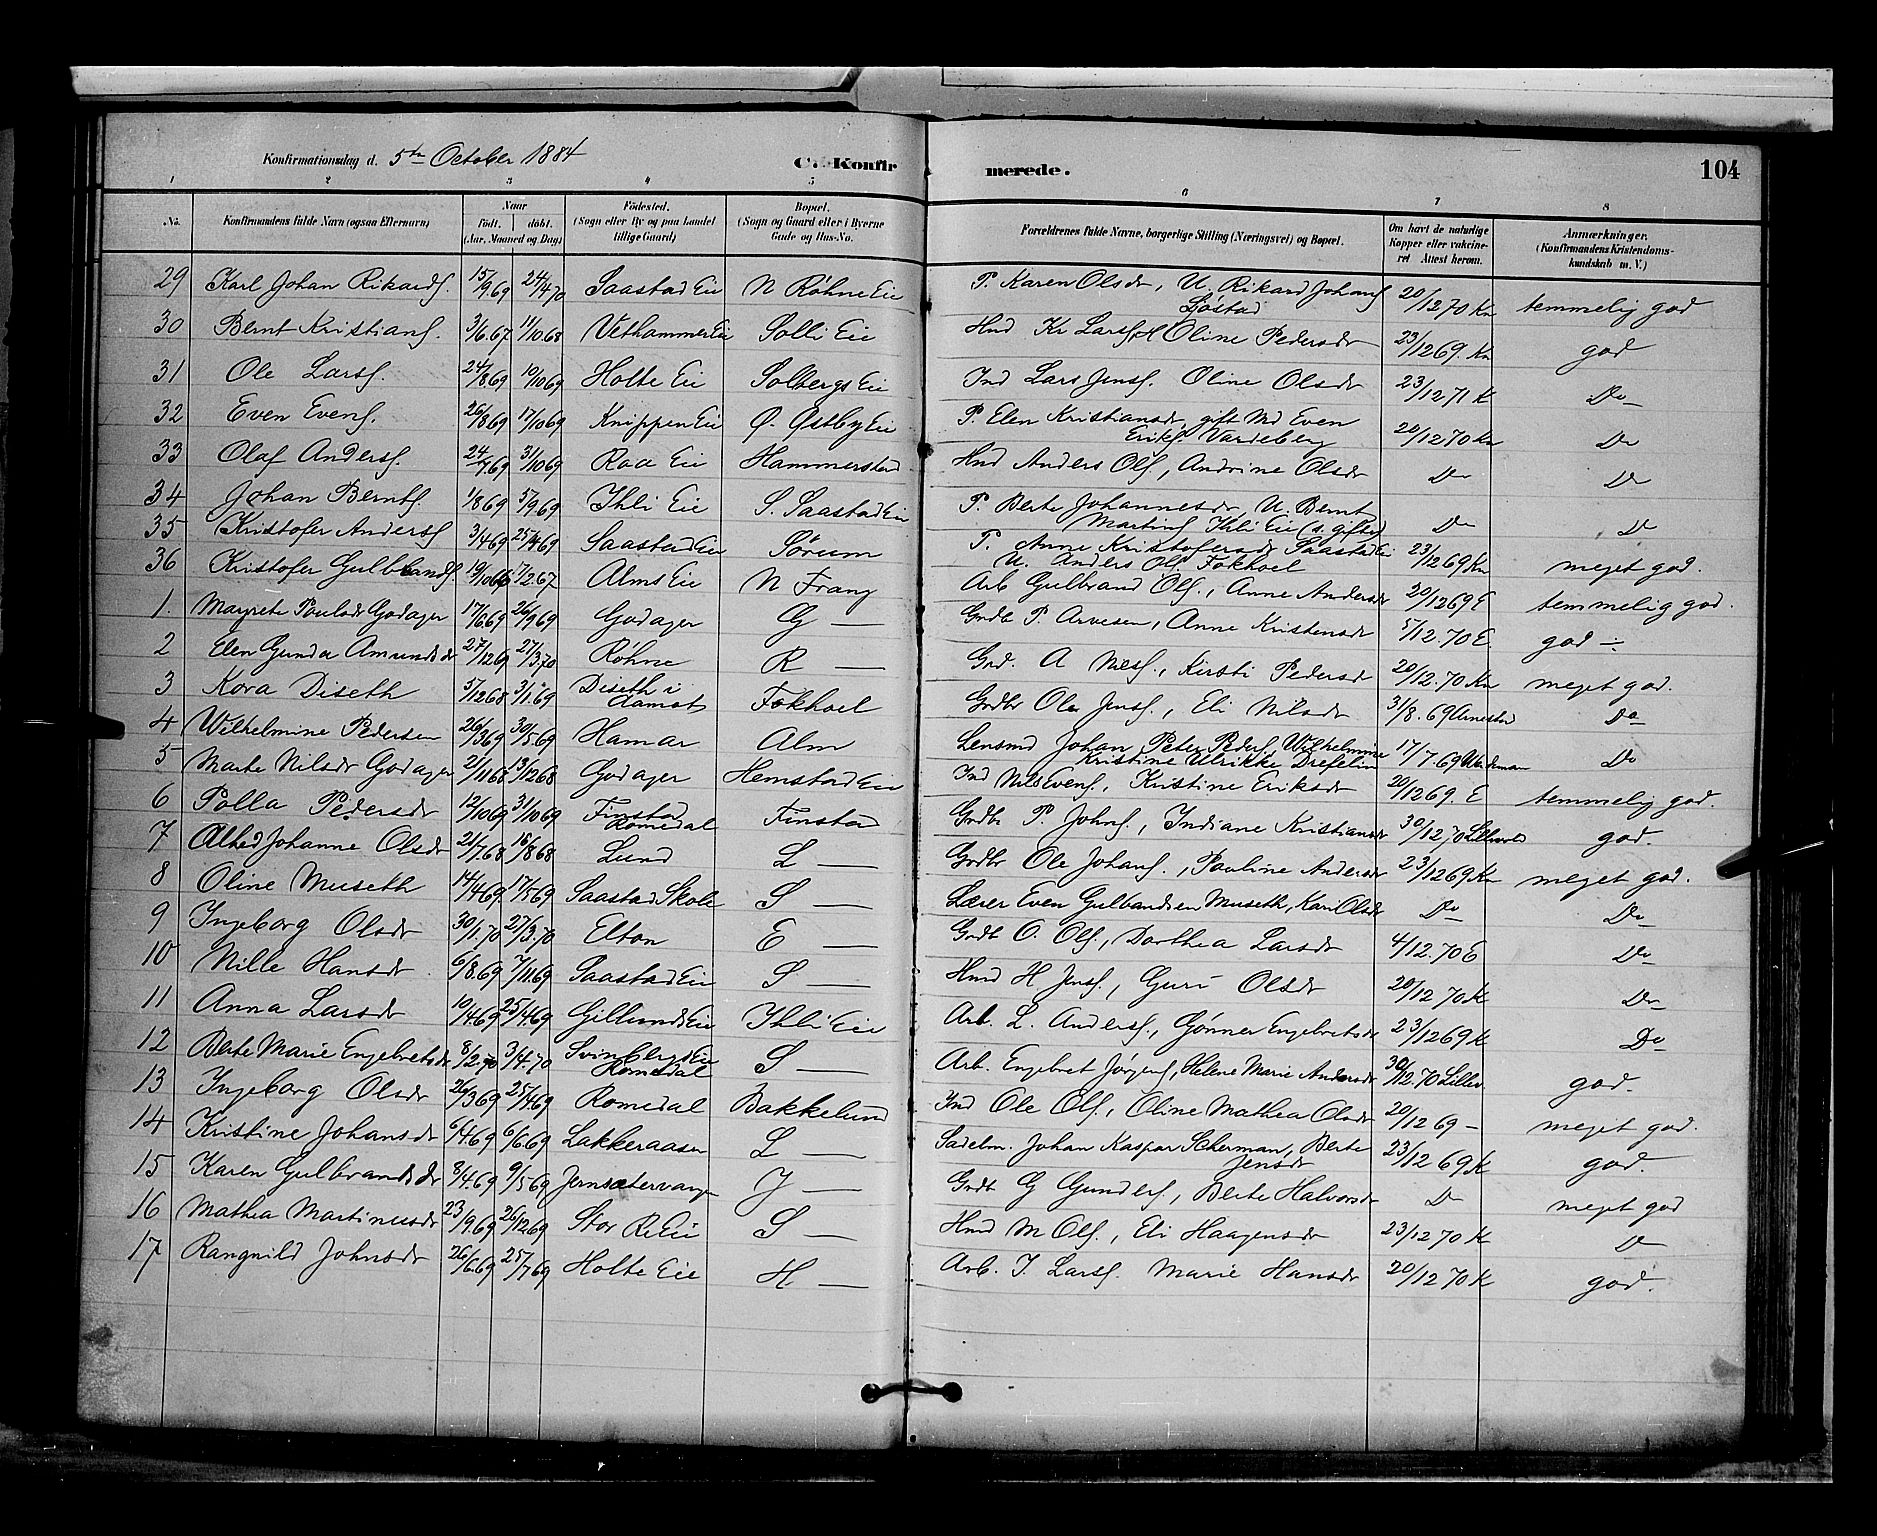 Konfirmationsdag d. 5te October 1884 C. Konfir merede. 104
1 2 3 4 5 6 7 8
No. Konfirmandens fulde Navn (ogsaa Efternavn) Naar födt. döbt. (Aar, Maaned og Dag) Födested. (Sogn eller By og paa Landet tillige Gaard) Bopæl. (Sogn og Gaard eller i Byerne Gade og Hus-No. Forældrenes fulde Navne, borgerlige Stilling (Næringsvei) og Bopæl. Om havt de naturlige Kopper eller vakcineret Attest herom. Anmærkninger. (Konfirmandens Kristendomskundskab m. V.)
29 Karl Johan Rikards. 15/9.69 24/4.70 Saastad Eie N Röhne Eie P. Karen Olsdr, U. Rikard Johans 20/12 70 Kn temmelig god
Sjöstad
30 Bernt Kristians. 3/6.67 11/10 68 Vethammer Eie Solli Eie Hmd Kr Lars, Oline Pedersdr 23/12 69. Kn god
31 Ole Lars. 24/8 69 10/10 69 Holte Eie Solbergs Eie Ind Lars Jens. Oline Olsdr 23/12 71 K Do
32 Even Evens. 26/8 69 17/10 69 Knippen Eie Ø. Østby Eie P. Elen Kristiansdr, gift Md Even 20/12 70 Kn Do
Eriks. Vardeberg
33 Olaf Anders. 24/7.69 31/10 69 Roa Eie Hammerstad Hmd Anders Ols., Andrine Olsdr Do Do
34 Johan Bernts 1/8 69 5/9.69 Ihli Eie S. Saastad Eie P. Berte Johannesdr, U. Bernt Do Do
Martins Ihli Eie (s. gifted)
35 Kristofer Anders 3/4 69 25/4 69 Saastad Eie Sørum P. Anne Kristofersdr Saastad Eie 23/12 69 Kn meget god.
U. Anders Ols. Fokhoel
36 Kristofer Gulbrands. 19/10 66 17/2.67 Alms Eie N Frang Arb Gulbrand Ols., Anne Andersdr 20/12 69 E temmelig god.
1. Margrete Paulsdr Godager 17/6.69 26/9 69 Godager G — Grdb P. Arvesen, Anne Kristensdr 5/12.70 E god ÷
2 Elen Gunda Amundsdr 27/12 69 27/3 70 Röhne R — Grd. A Nils., Kirsti Pedersdr 20/12.70 Kn meget god.
3 Kora Diseth 5/12 68 3/1.69 Diseth i Aamot Fokhoel Grdbr Ole Jens., Eli Nilsdr 31/8.69 Arnestad Do
4 Wilhelmine Pedersen 26/3 69 30/5.69 Hamar Alm Lensmd Johan Peter Peders, Wilhelmine 17/7.69 Do
Kristine Ulrikke Drefelin
5 Marte Nilsdr Godager 2/11 68 13/12 68 Godager Hemstad Eie Ind Nils Evens., Kristine Eriksdr 20/12 69. E temmelig god.
6 Polla Pedersdr 12/10 69 31/10 69 Finstad Romedal Finstad Grdb P Johns., Indiane Kristiansdr 30/12.70 god.
7 Alhed Johanne Olsdr 21/7.68 16/8 68 Lund L — Grdbr Ole Johans., Pauline Andersdr 23/12 69 Kn meget god.
8 Oline Museth 14/4 69 17/5 69 Saastad Skole S — Lærer Even Gulbandsen Museth, Kari Olsdr Do Do
9 Ingeborg Olsdr 30/1.70 27/3.70 Elton E — Grdb O. Ols., Dorthea Larsdr 4/12.70 E Do
10 Nille Hansdr 6/8.69 7/11 69 Saastad Eie S — Hmd H Jens., Guri Olsdr 20/12 70 K Do
11 Anna Larsdr 10/4.69 25/4.69 Gillunds Eie Ihli Eie Arb. L. Anders., Gønner Engebretsdr 23/12 69 K Do
12 Berte Marie Engebretsdr 8/2.70 3/4.70 Svinberg Eie Romedal S — Arb. Engebret Jørgens, Helene Marie Andersdr 30/12.70 Lillev. god.
13 Ingeborg Olsdr 26/3 69 25/4.69 Romedal Bakkelund Ind Ole Ols., Oline Mathea Olsdr 20/12 69 – meget god.
14 Kristine Johansdr 6/4.69 6/6.69 Lakkeraasen L — Sadelm. Johan Kaspar Scherman, Berte 23/12 69 K god.
Jensdr
15 Karen Gulbrandsdr 8/4.69 9/5 69 Jernsætervang J — Grdb G Gunders., Berte Halvorsdr Do meget god
16 Mathea Martinusdr 23/9.69 26/12.69 Stor Re Eie S — Hmd M Ols., Eli Haagensdr 23/12 70 K Do
17 Rangnild Johnsdr 26/6.69 25/7 69 Holte Eie H — Arb. J. Lars. Marie Hansdr 20/12 70 K god.